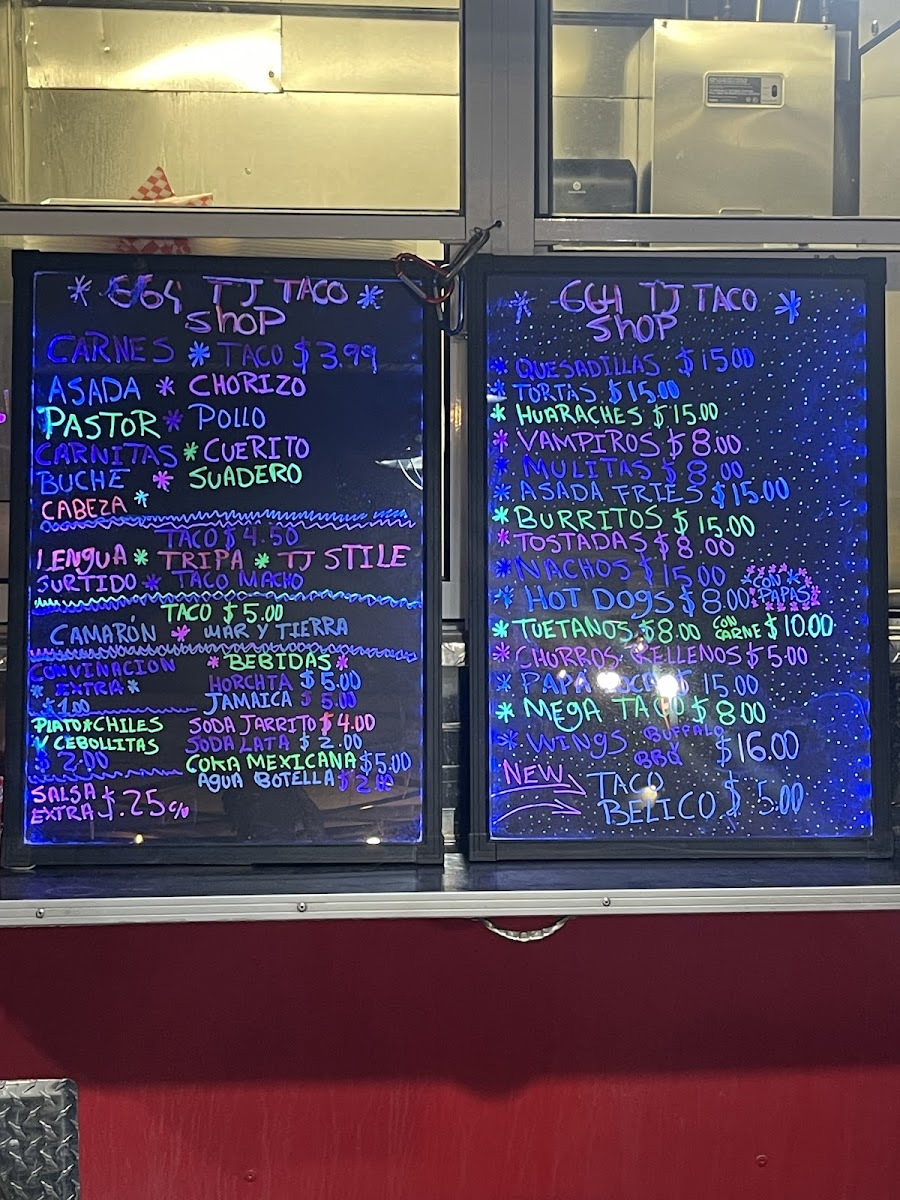 * 664 TJ TACO *
SHOP
CARNES * TACO $3.99
ASADA * CHORIZO
PASTOR * POLLO
CARNITAS * CUERITO
BUCHE * SUADERO
CABEZA *
TACO $4.50
LENGUA * TRIPA * TJ STILE
SURTIDO * TACO MACHO
TACO $5.00
CAMARÓN * MAR Y TIERRA
CONVINACION
* EXTRA *
$1.00
PLATO * CHILES
Y CEBOLLITAS
$2.00
SALSA
EXTRA $.25 c/o
* BEBIDAS *
HORCHTA $5.00
JAMAICA $5.00
SODA JARRITO $4.00
SODA LATA $2.00
COKA MEXICANA $5.00
AGUA BOTELLA $2.00
* 664 TJ TACO *
SHOP
* QUESADILLAS $15.00
* TORTAS $15.00
* HUARACHES $15.00
* VAMPIROS $8.00
* MULITAS $8.00
* ASADA FRIES $15.00
* BURRITOS $15.00
* TOSTADAS $8.00
* NACHOS $15.00
* HOT DOGS $8.00 CON PAPAS
* TUETANOS $8.00 CON CARNE $10.00
* CHORROS RELLENOS $5.00
* PAPA $15.00
* MEGA TACO $8.00
* WINGS BUFFALO Y BBQ $16.00
NEW TACO
BELICO $5.00